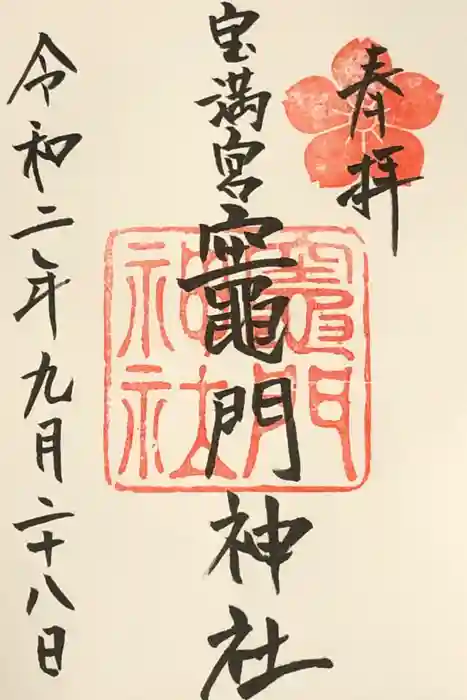 奉拝
宝満宮竈門神社
竈門神社
令和二年九月二十八日